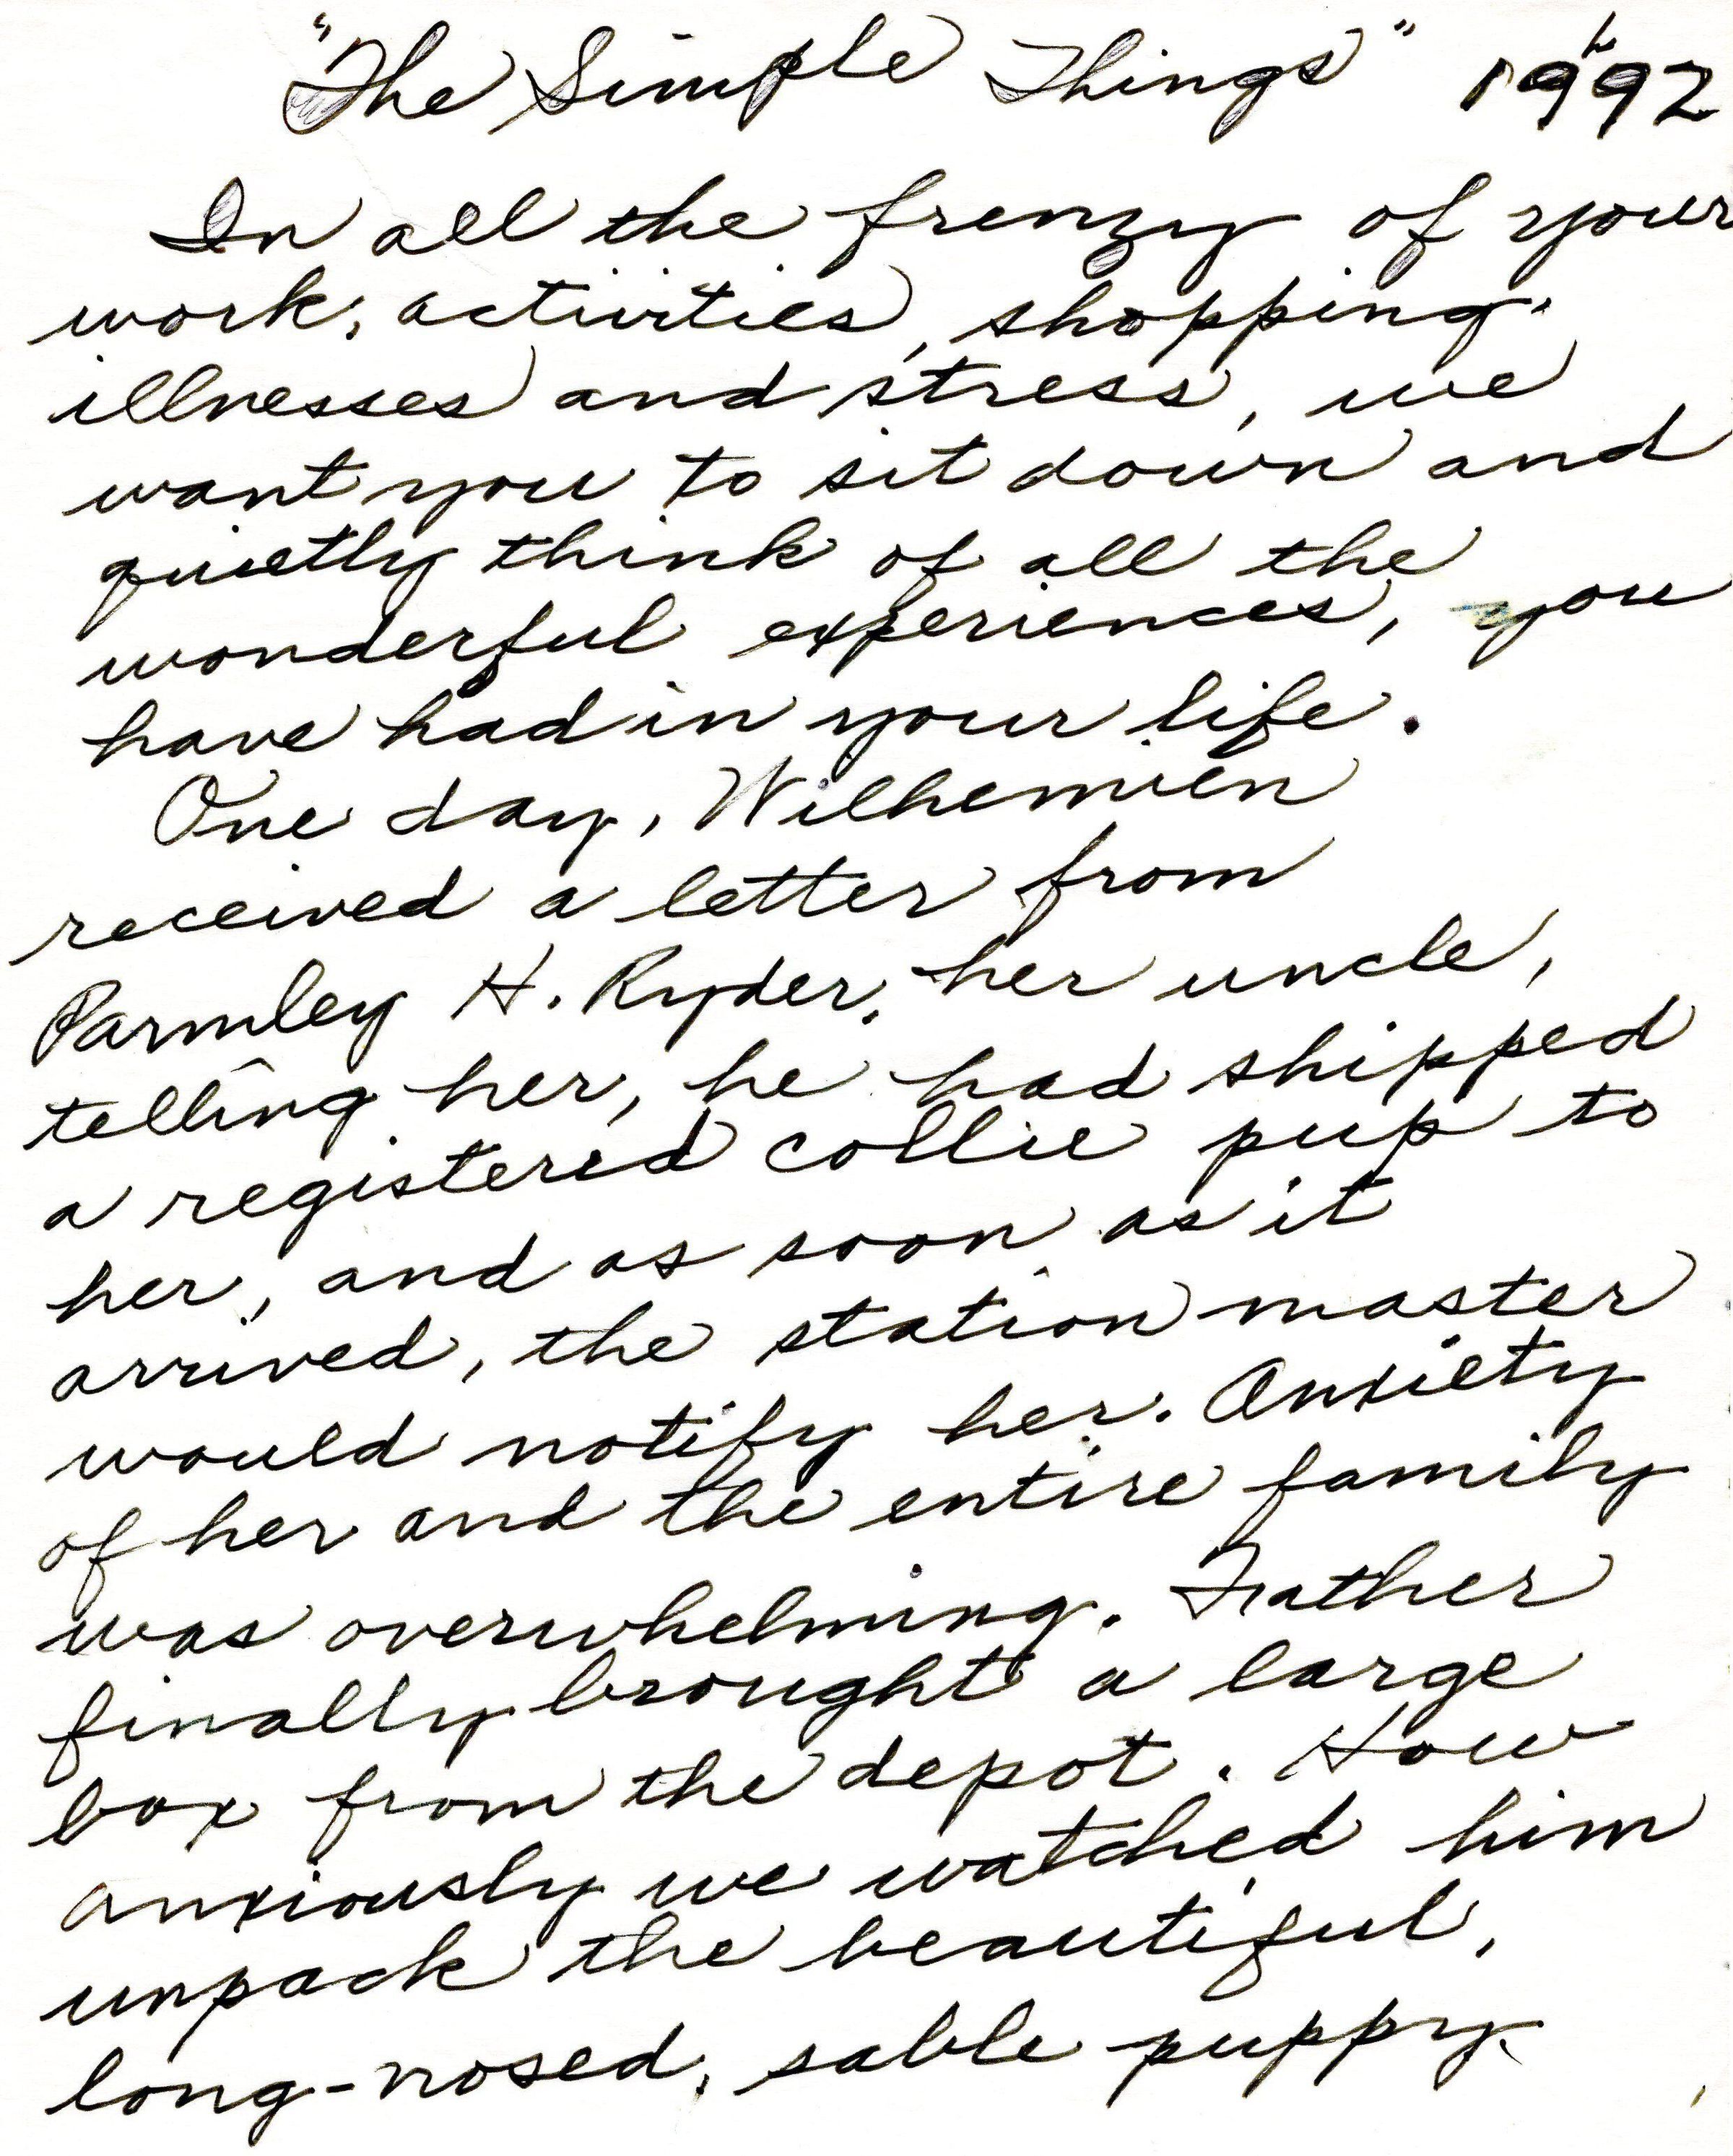 "The Simple Things" 1992
In all the frenzy of your
work, activities, shopping
illnesses and stress, we
want you to sit down and
quietly think of all the
wonderful experiences, you
have had in your life.
One day, Wilhemien
received a letter from
Parmley H. Ryder, her uncle,
telling her, he had shipped
a registered collie pup to
her, and as soon as it
arrived, the station master
would notify her. Anxiety
of her and the entire family
was overwhelming. Father
finally brought a large
box from the depot. How
anxiously we watched him
unpack the beautiful,
long-nosed, sable puppy.